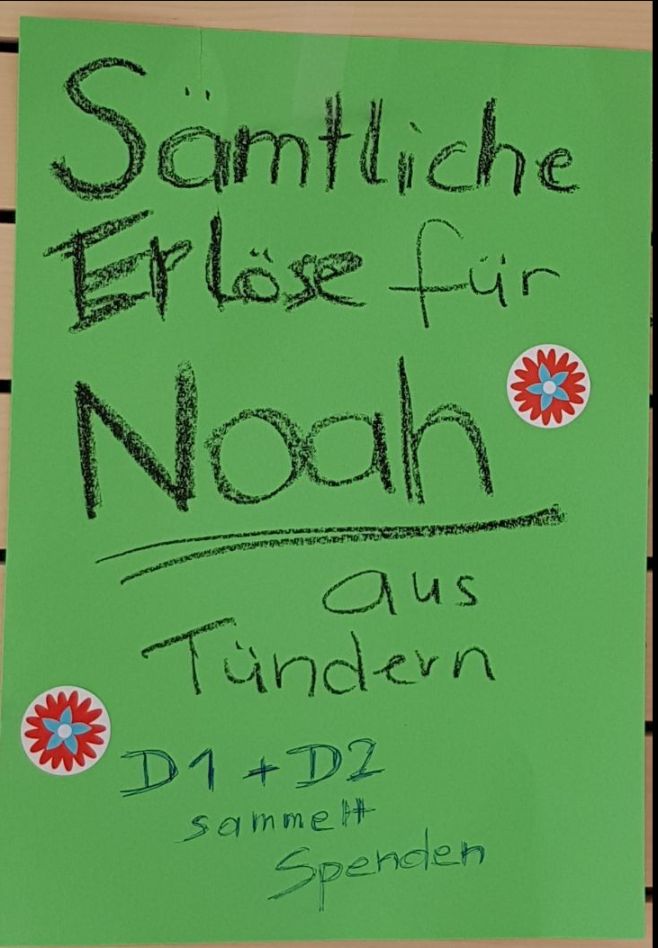 Sämtliche
Erlöse für
Noah
aus
Tündern
D1 + D2
sammelt
Spenden